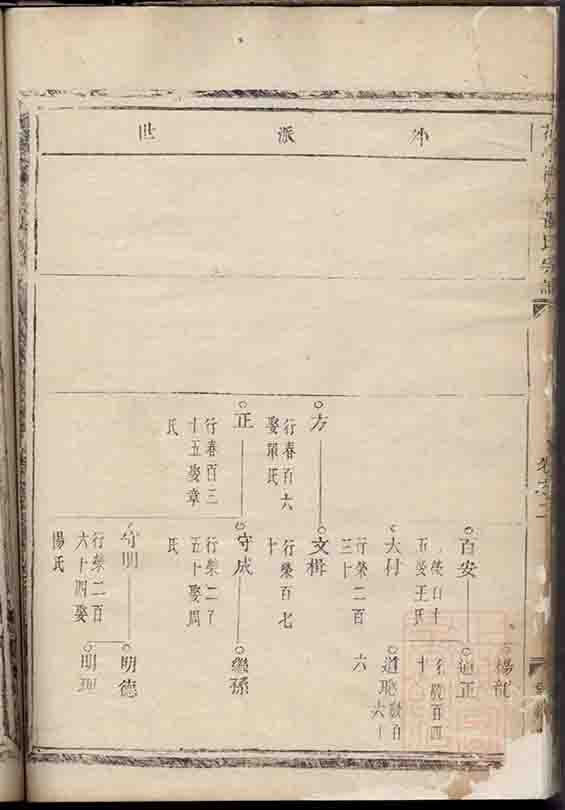 外派世
氏宗譜
卷之二
楊龍
百安
五娶王氏
道正
敬百四
十
大村
行榮二百
三十
道聰
敬百
六十
六
方
行春百六
娶單氏
文楫
行榮百七
十
正
行春百三
十五娶章
氏
守成
行榮二百
五十娶周
氏
繼孫
守明
行榮二百
六十四娶
楊氏
明德
明理